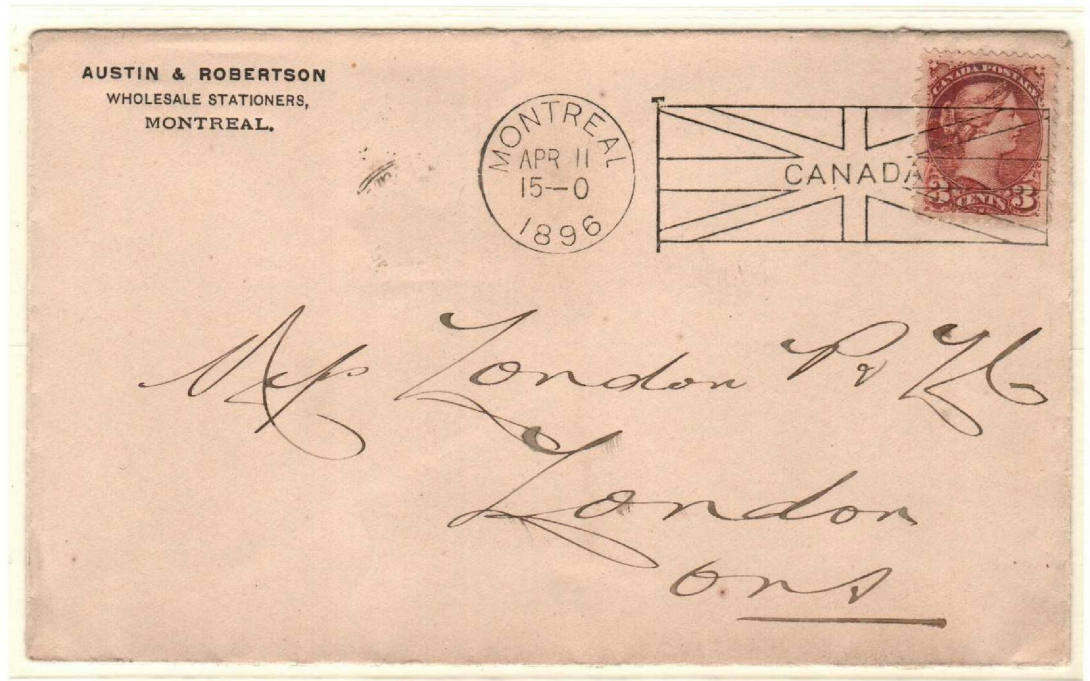 AUSTIN & ROBERTSON
WHOLESALE STATIONERS,
MONTREAL.
MONTREAL
APR 11
15—0
1896
CANADA
CANADA POSTAGE
3 CENTS 3
London
London
Ont